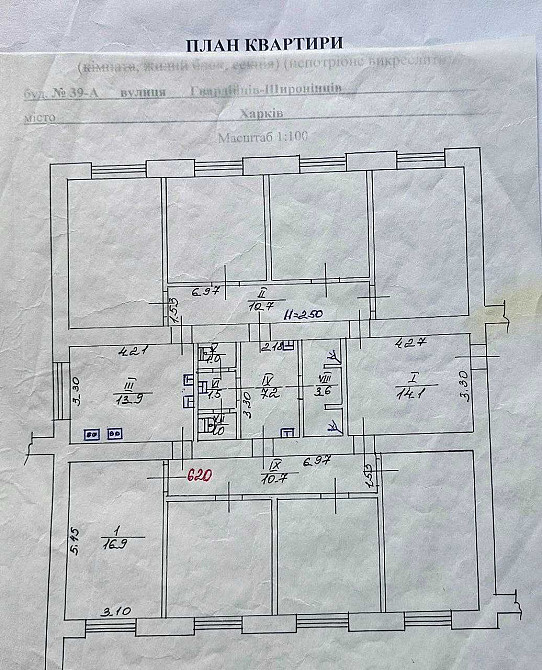 ПЛАН КВАРТИРИ
(кімната, жилий блок, секція) (непотрібне викреслити)
буд. № 39-А вулиця Гвардійців-Широнінців
місто Харків
Масштаб 1:100
6.97
II
10.7
1.53
H=2.50
4.21
III
13.9
3.30
V
1.0
VI
1.5
VII
1.0
2.18
IV
7.2
3.30
VIII
3.6
4.27
I
14.1
3.30
620
IX
10.7
6.97
1.53
1
16.9
5.45
3.10